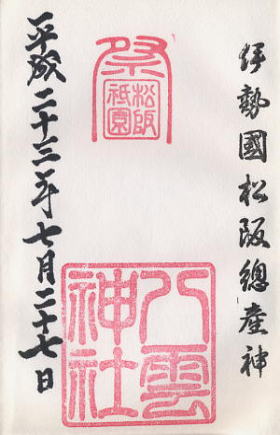 伊勢國松阪總産神
祭
松阪
祗園
八雲
神社
平成二十三年七月二十七日